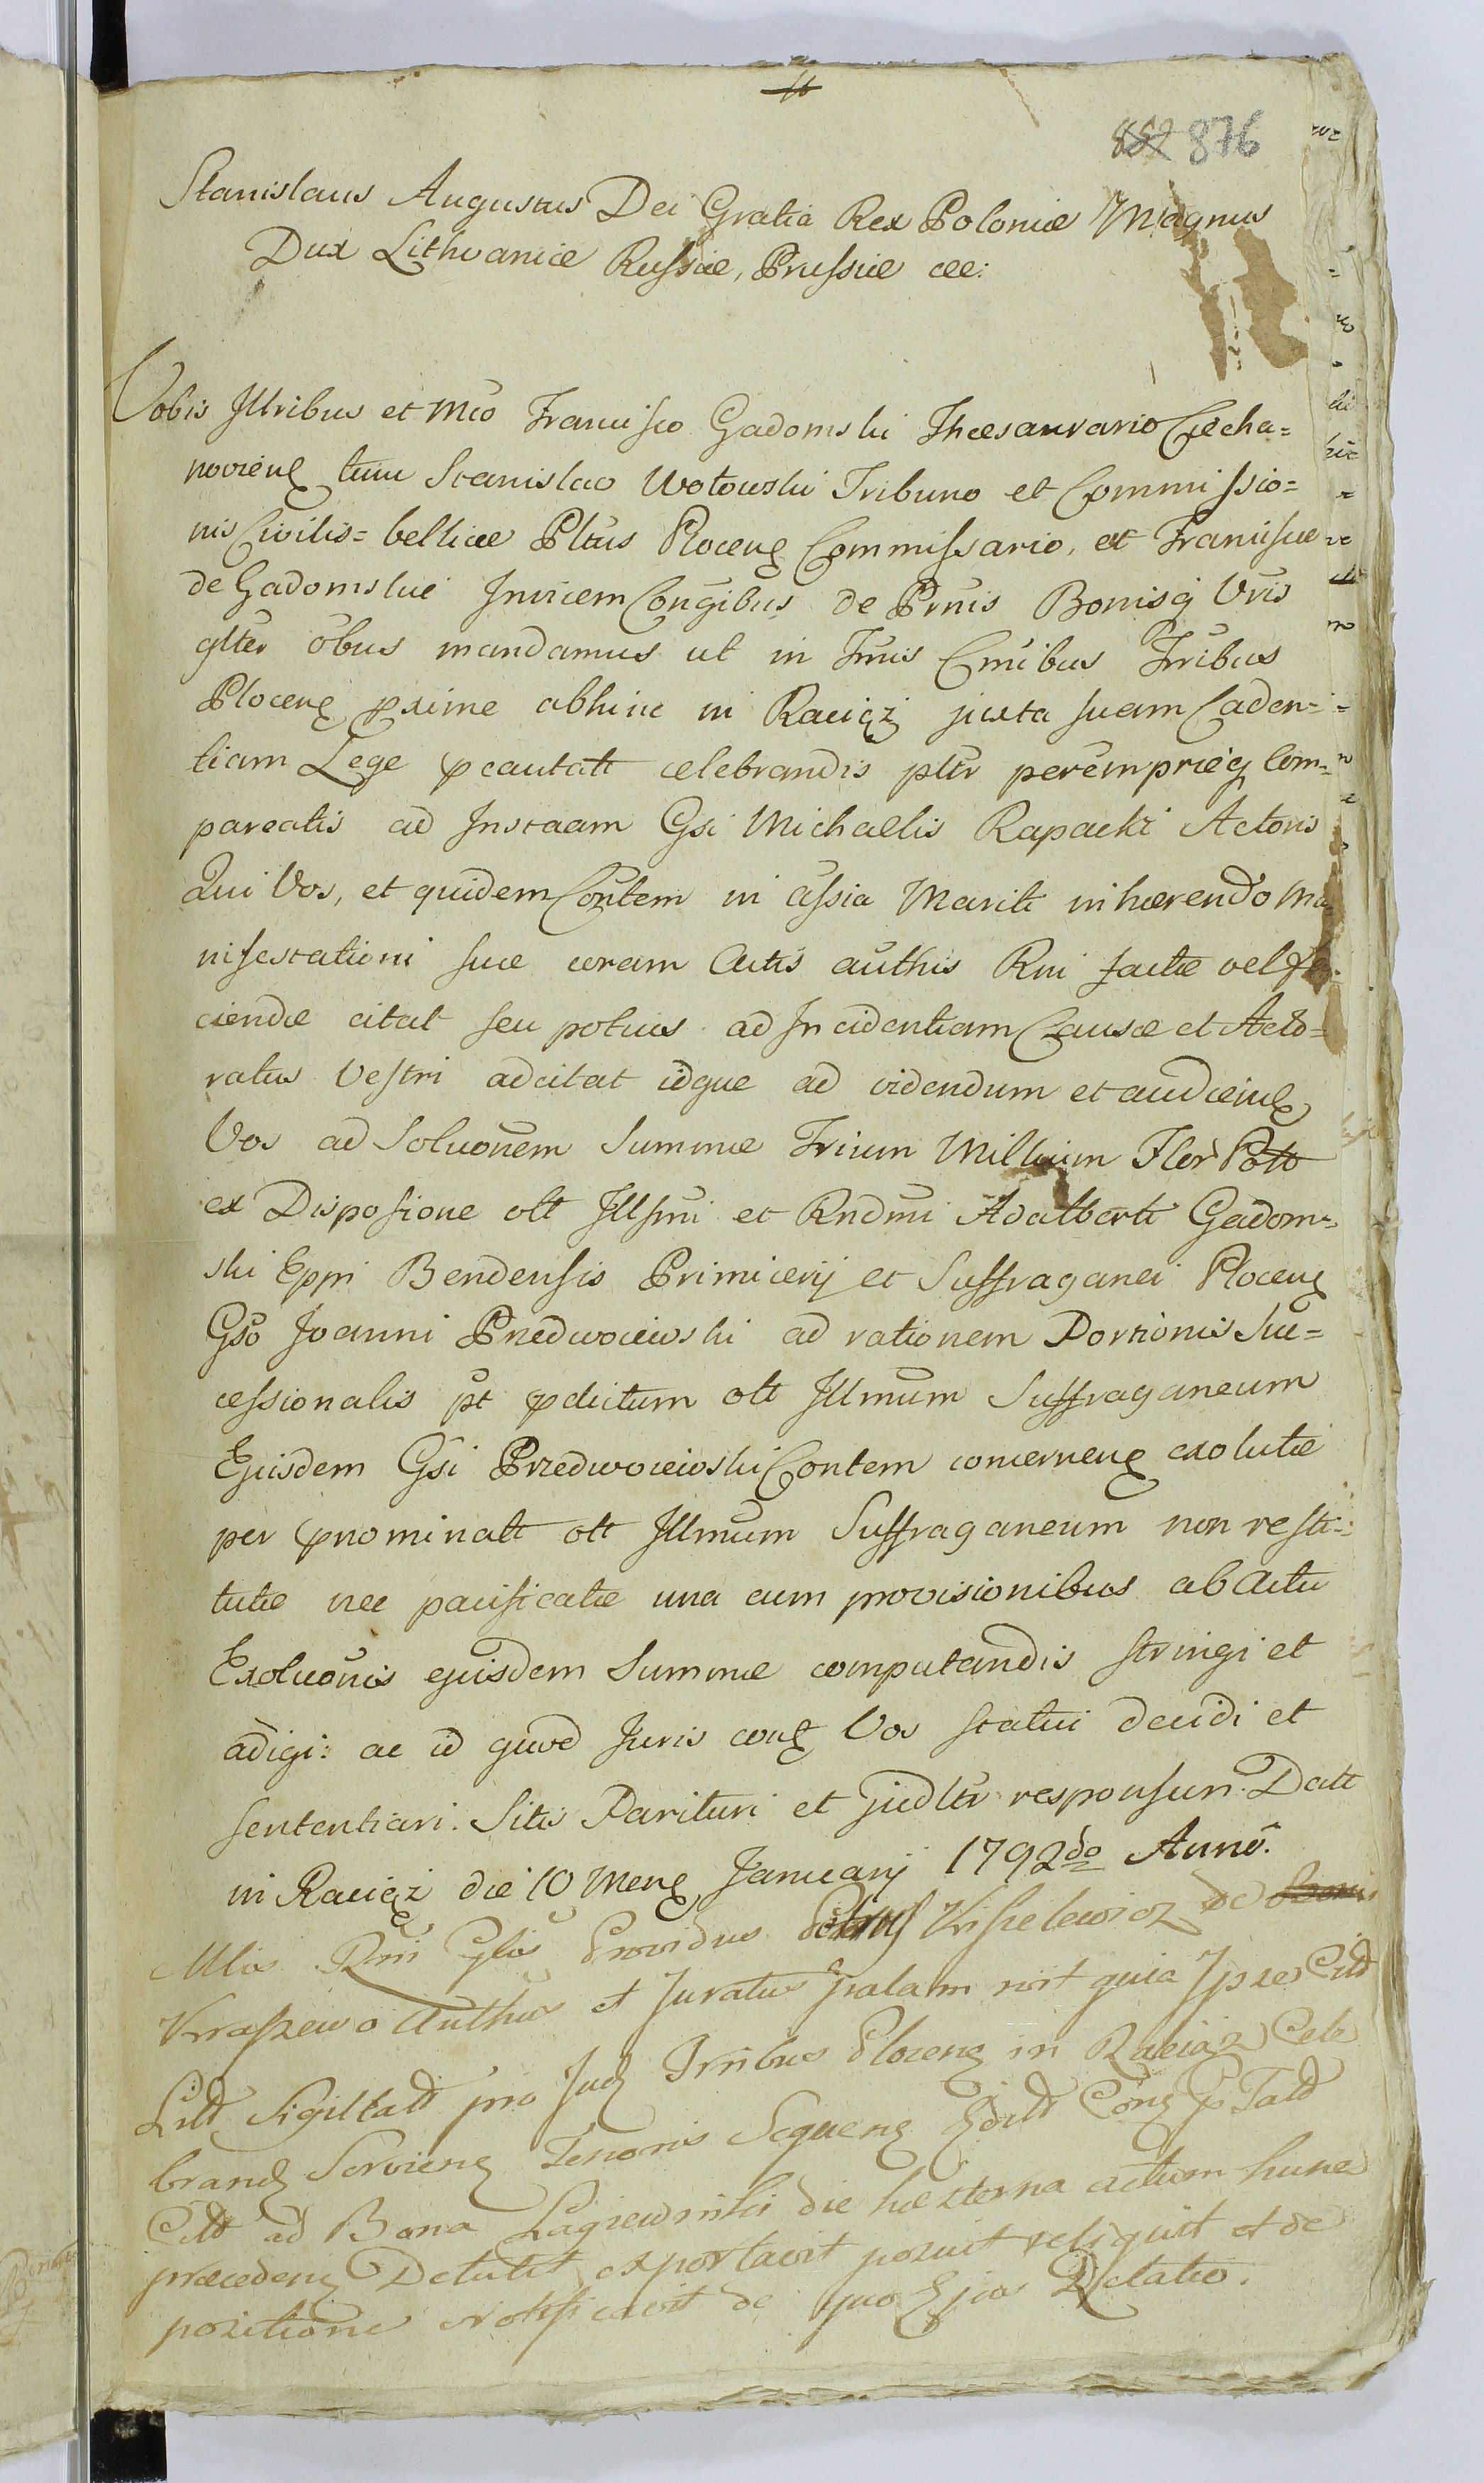 852 876
Stanislaus Augustus Dei Gratia Rex Poloniæ Magnus
Dux Lithvaniæ Russiæ, Prussiæ etc:
Vobis Illribus et Mco Francisco Gadomski Thesaurario Ciecha=
novieng tum Stanislao Wotowski Tribuno et Commissio=
nis Civilis=bellicæ Pltus Ploceng Commissario, et Franciscæ
de Gadomskie Invicem Congibus de Prnis Bonisq Vris
glter obus mandamus ut in Trnis Cmibus Tribus
Ploceng pxime abhinc in Raciąż juxta suam Caden=
tiam Lege pcautatt celebrandis pltr peremprieq com=
pareatis ad Instaam Gsi Michaelis Rapacki Actoris
Qui Vos, et quidem Contem in assia Mariti inhærendo Ma
nifestationi suæ coram Actis authis Rni factæ vel fa
ciendæ citat seu potius ad Incidentiam Causæ et Acto=
ratus Vestri adcitat idque ad videndum et audieng
Vos ad Soluonem Summæ Trium Millium Flor Poltt
ex Disposione olt Illsmi et Rndmi Adalberti Gadom=
ski Eppi Bendensis Primicerij et Suffraganei Ploceng
Gso Joanni Przedwoiewski ad rationem Portionis Suc=
cessionalis pt pdictum olt Illmum Suffraganeum
Ejusdem Gsi Przedwoiewski Contem concerneng exolutæ
per pnominatt olt Illmum Suffraganeum non resti=
tutæ nec pacificatæ una cum provisionibus ab Actu
Exoluonis ejusdem Summæ computandis stringi et
adigi: ac id quod Juris cong Vos statui decidi et
sententiari. Sitis Parituri et judltr responsuri. Datt
in Raciąż die 10 Meng Januarij 1792do Anno.
Mlis Rni Glis Providus Petrus Kisielewicz de
Kraszewo Authus et Juratus palam rcit quia Ipse Citt
Litt Sigillatt pro Judg Trnibus Ploceng in Raciąz Cele
brandg Servieng Tenoris Sequeng Cong p Tatt
Citt ad Bona die hesterna actum hunc
præcedeng Detulit exportavit posuit reliquit et de
positione notificavit de quo Ejus Relatio.